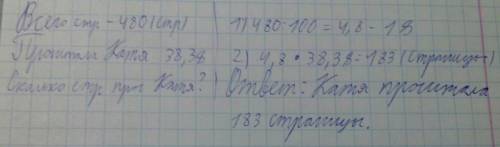 Всего стр - 480 (стр)
Прочитала Катя 38,3%
Сколько стр. проч Катя?
1) 480:100 = 4,8 - 1%
2) 4,8 • 38,3% = 183 (страницы)
Ответ: Катя прочитала
183 страницы.